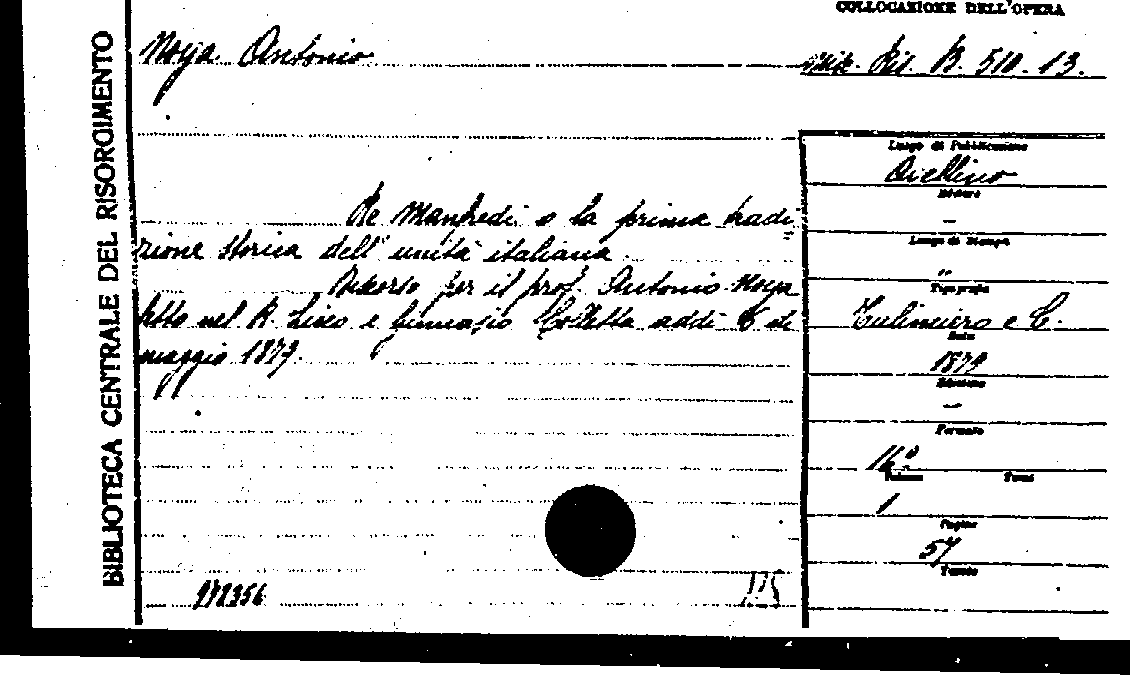 COLLOCAZIONE DELL'OPERA
Noya Antonio
Ris. B. 510.13.
BIBLIOTECA CENTRALE DEL RISORGIMENTO
Luogo di Pubblicazione
Avellino
Editore
—
Luogo di Stampa
"
Tipografia
e C.
Data
1879
Edizione
—
Formato
16°
Volume Tomi
1
Pagine
57
Tavole
Re Manfredi o la prima tradi
zione storica dell'unità italiana.
Discorso per il prof. Antonio Noya
letto nel R. Liceo e ginnasio Colletta addì di
maggio 1879.